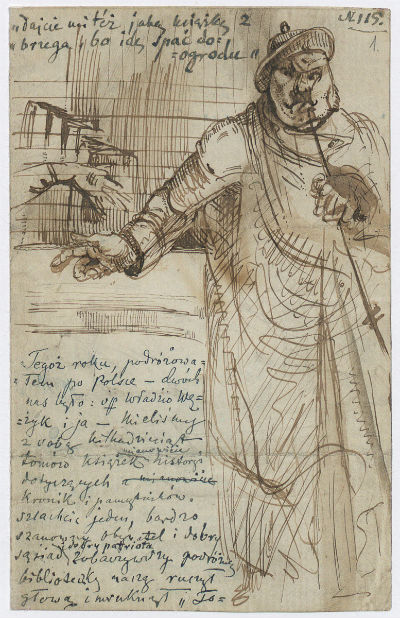 „dajcie mi téż jaką książkę z
„brzega, bo idę spać do-
=ogrodu"
N. 115.
1.
Tegoż roku, podróżowa=
łem po Polsce – dwóch
nas było: Władzio Wę=
żyk i ja – mieliśmy
z sobą kilkadziesiąt
tomów książek historji
mianowicie
dotyczących
kronik i pamiętników.
szlachcic jeden, bardzo
szanowny obywatel i dobry
i dobry patriota
sąsiad zobaczywszy podróżną
biblioteczkę naszą ruszył
głową i mruknął „To=